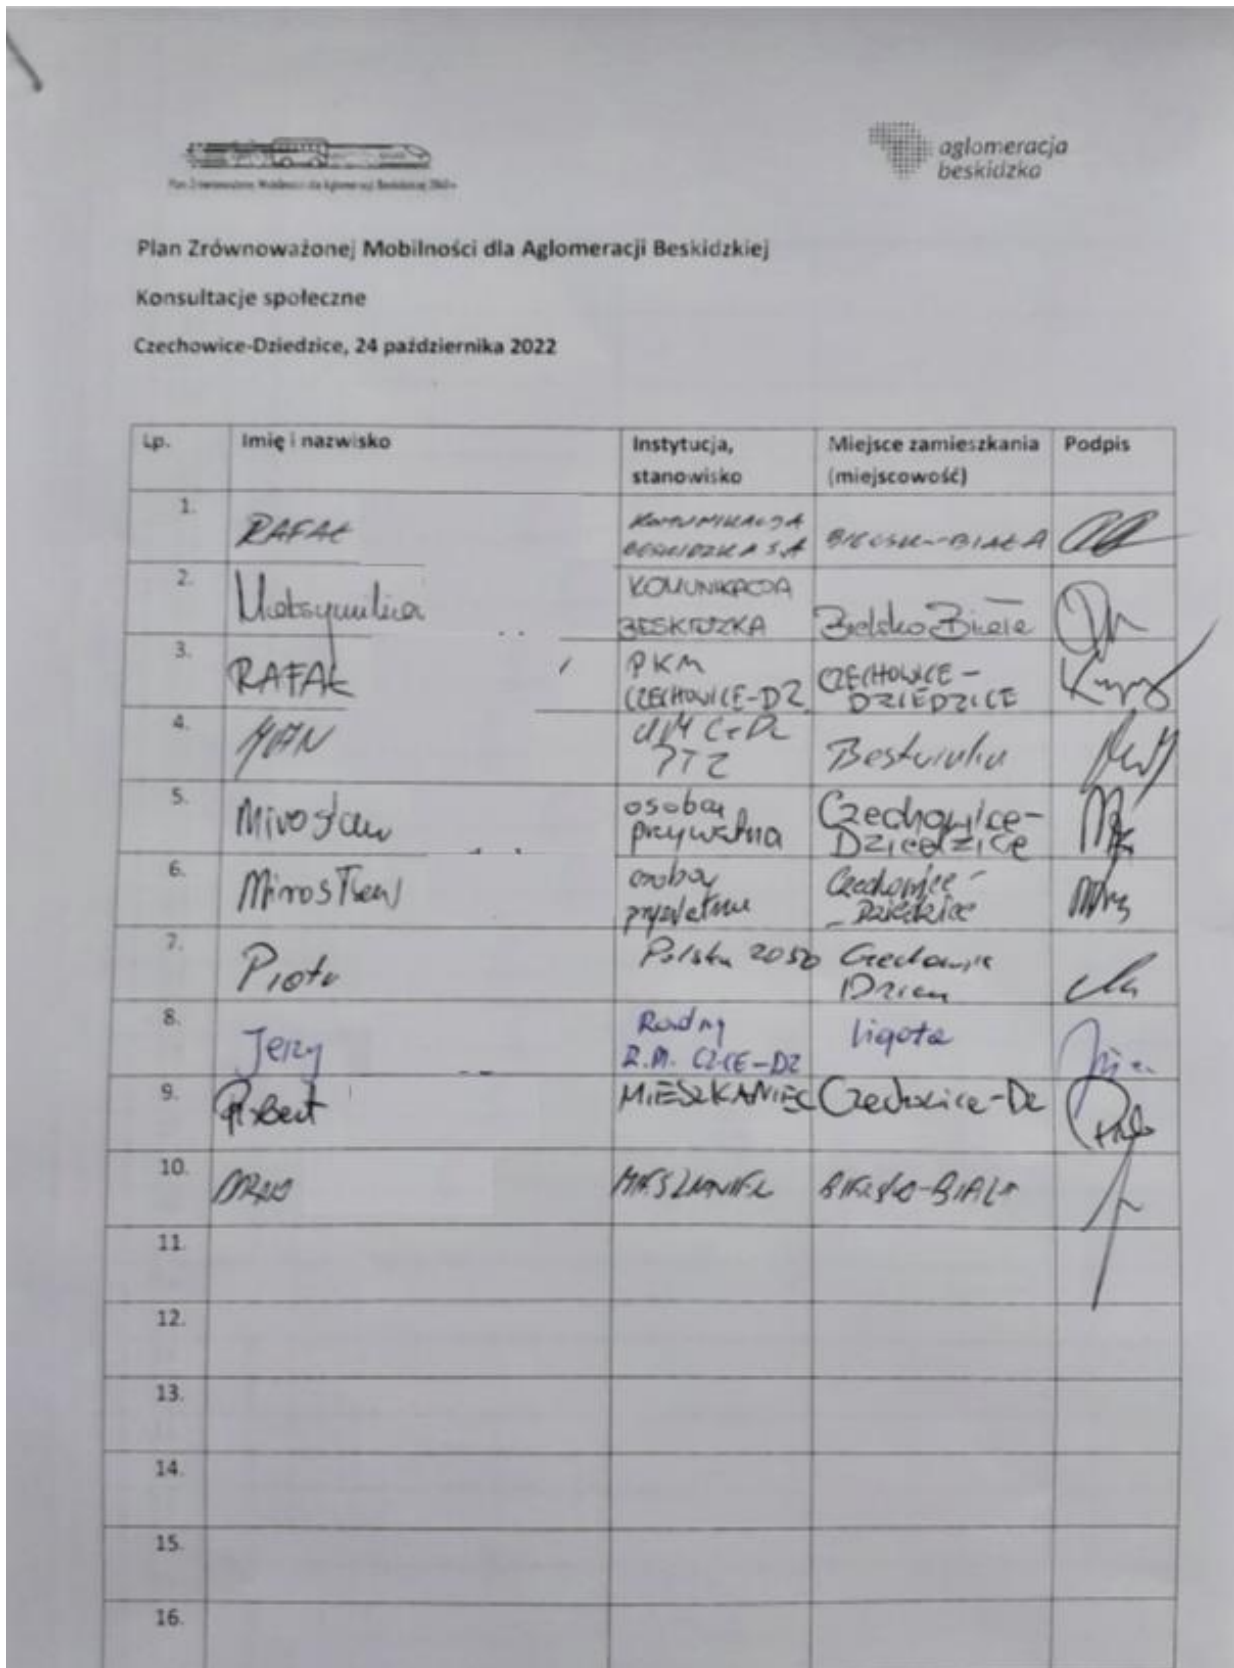 aglomeracja
beskidzka
Plan Zrównoważonej Mobilności dla Aglomeracji Beskidzkiej 2040+
Plan Zrównoważonej Mobilności dla Aglomeracji Beskidzkiej
Konsultacje społeczne
Czechowice-Dziedzice, 24 października 2022
Lp. Imię i nazwisko Instytucja, stanowisko Miejsce zamieszkania (miejscowość) Podpis
1. RAFAŁ KOMUNIKACJA BESKIDZKA S.A BIELSKO-BIAŁA
2. Maksymilian KOMUNIKACJA BESKIDZKA Bielsko Biała
3. RAFAŁ PKM CZECHOWICE-DZ CZECHOWICE-DZIEDZICE
4. JAN UM
5. Mirosław osoba prywatna Czechowice-Dziedzice
6. Mirosław osoba prywatna Czechowice-Dziedzice
7. Piotr Polska 2050 Czechowice
8. Jerzy Radny R.M. CZ-CE-DZ Ligota
9. Robert MIESZKANIEC Czechowice-Dz
10. MIESZKANIEC BIELSKO-BIAŁA
11.
12.
13.
14.
15.
16.